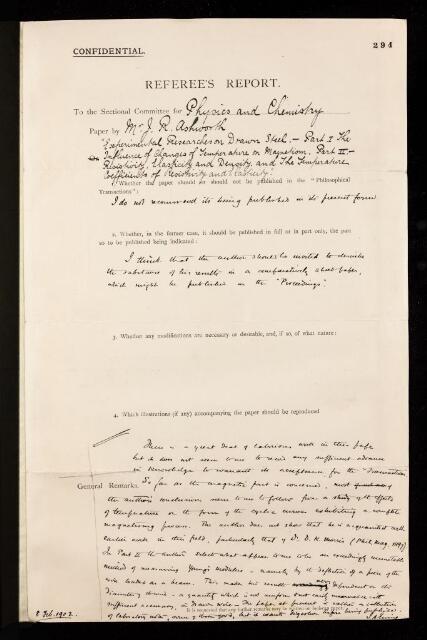 294
CONFIDENTIAL.
REFEREE'S REPORT.
To the Sectional Committee for Physics and Chemistry
Paper by Mr J. R. Ashworth
"Experimental Researches on Drawn Steel. - Part I The
on Influence of Changes of Temperature on Magnetism. Part II -
Resistivity, Elasticity and Density, and The Temperature
Coefficients of Resistivity and Elasticity."
1. Whether the paper should or should not be published in the "Philosophical
Transactions":
I do not recommend its being published in its present form
2. Whether, in the former case, it should be published in full or in part only, the part
so to be published being indicated:
I think that the author should be invited to describe
the substance of his results in a comparatively short paper,
which might be published in the "Proceedings".
3. Whether any modifications are necessary or desirable, and, if so, of what nature:
4. Which illustrations (if any) accompanying the paper should be reproduced
There is a great deal of laborious work in this paper
but it does not seem to me to record any sufficient advance
in knowledge to warrant its acceptance for the "Transactions".
General Remarks. So far as the magnetic part is concerned, most
the author's conclusions seem to me to follow from a study of the effects
of temperature on the form of the cyclic curves exhibiting a complete
magnetising process. The author does not show that he is acquainted with
earlier work in this field, particularly that of Dr. D. K. Morris (Phil. Mag. 1897)
In Part II the author selects what appears to me to be an exceedingly unsuitable
method of measuring Young's modulus - namely by the deflection of a piece of the
wire loaded as a beam. This made his results very dependent on the
diameter - a quantity which is not uniform nor easily measurable with
sufficient accuracy, in drawn wire. The paper at present is rather a collection
of laboratory notes, some of them good, but it wants digestion before being published.
It is requested that
8 Feb. 1902.
J.A. Ewing